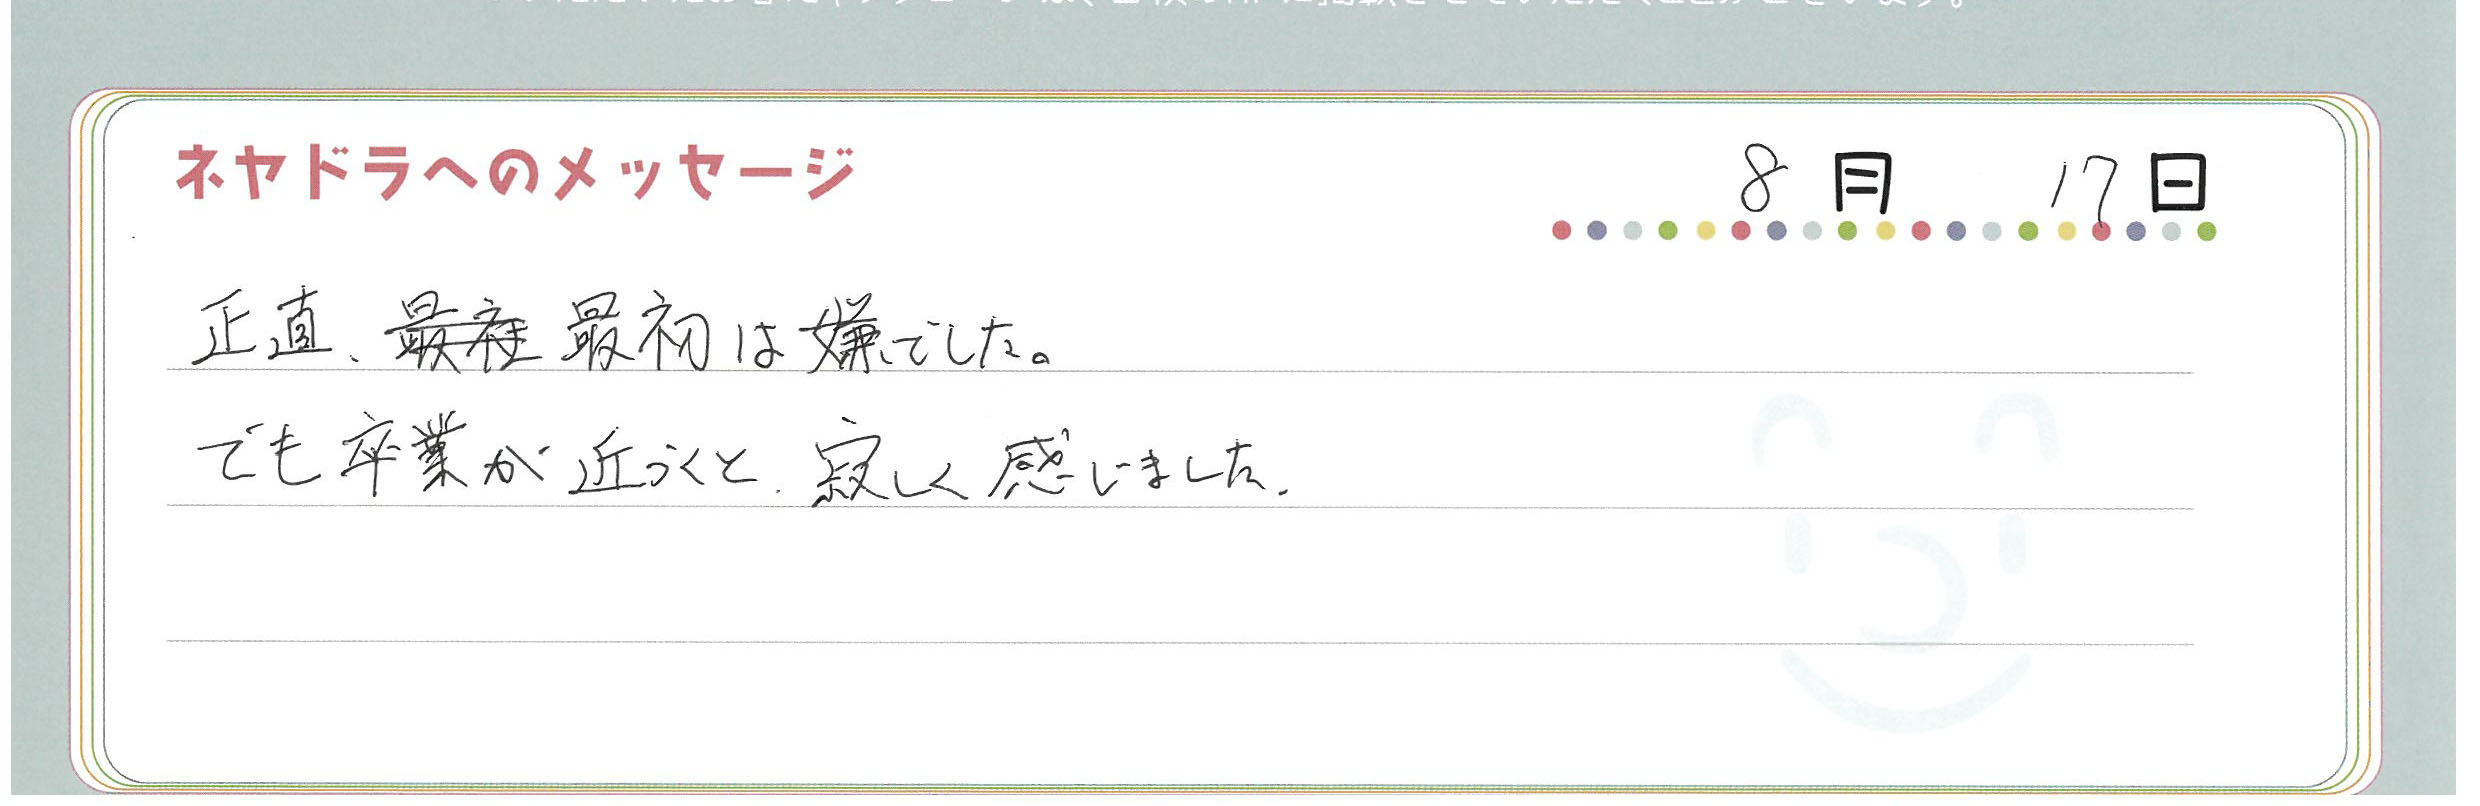 ネヤドラへのメッセージ
8月 17日
正直、最初は嫌でした。
でも卒業が近づくと、寂しく感じました。